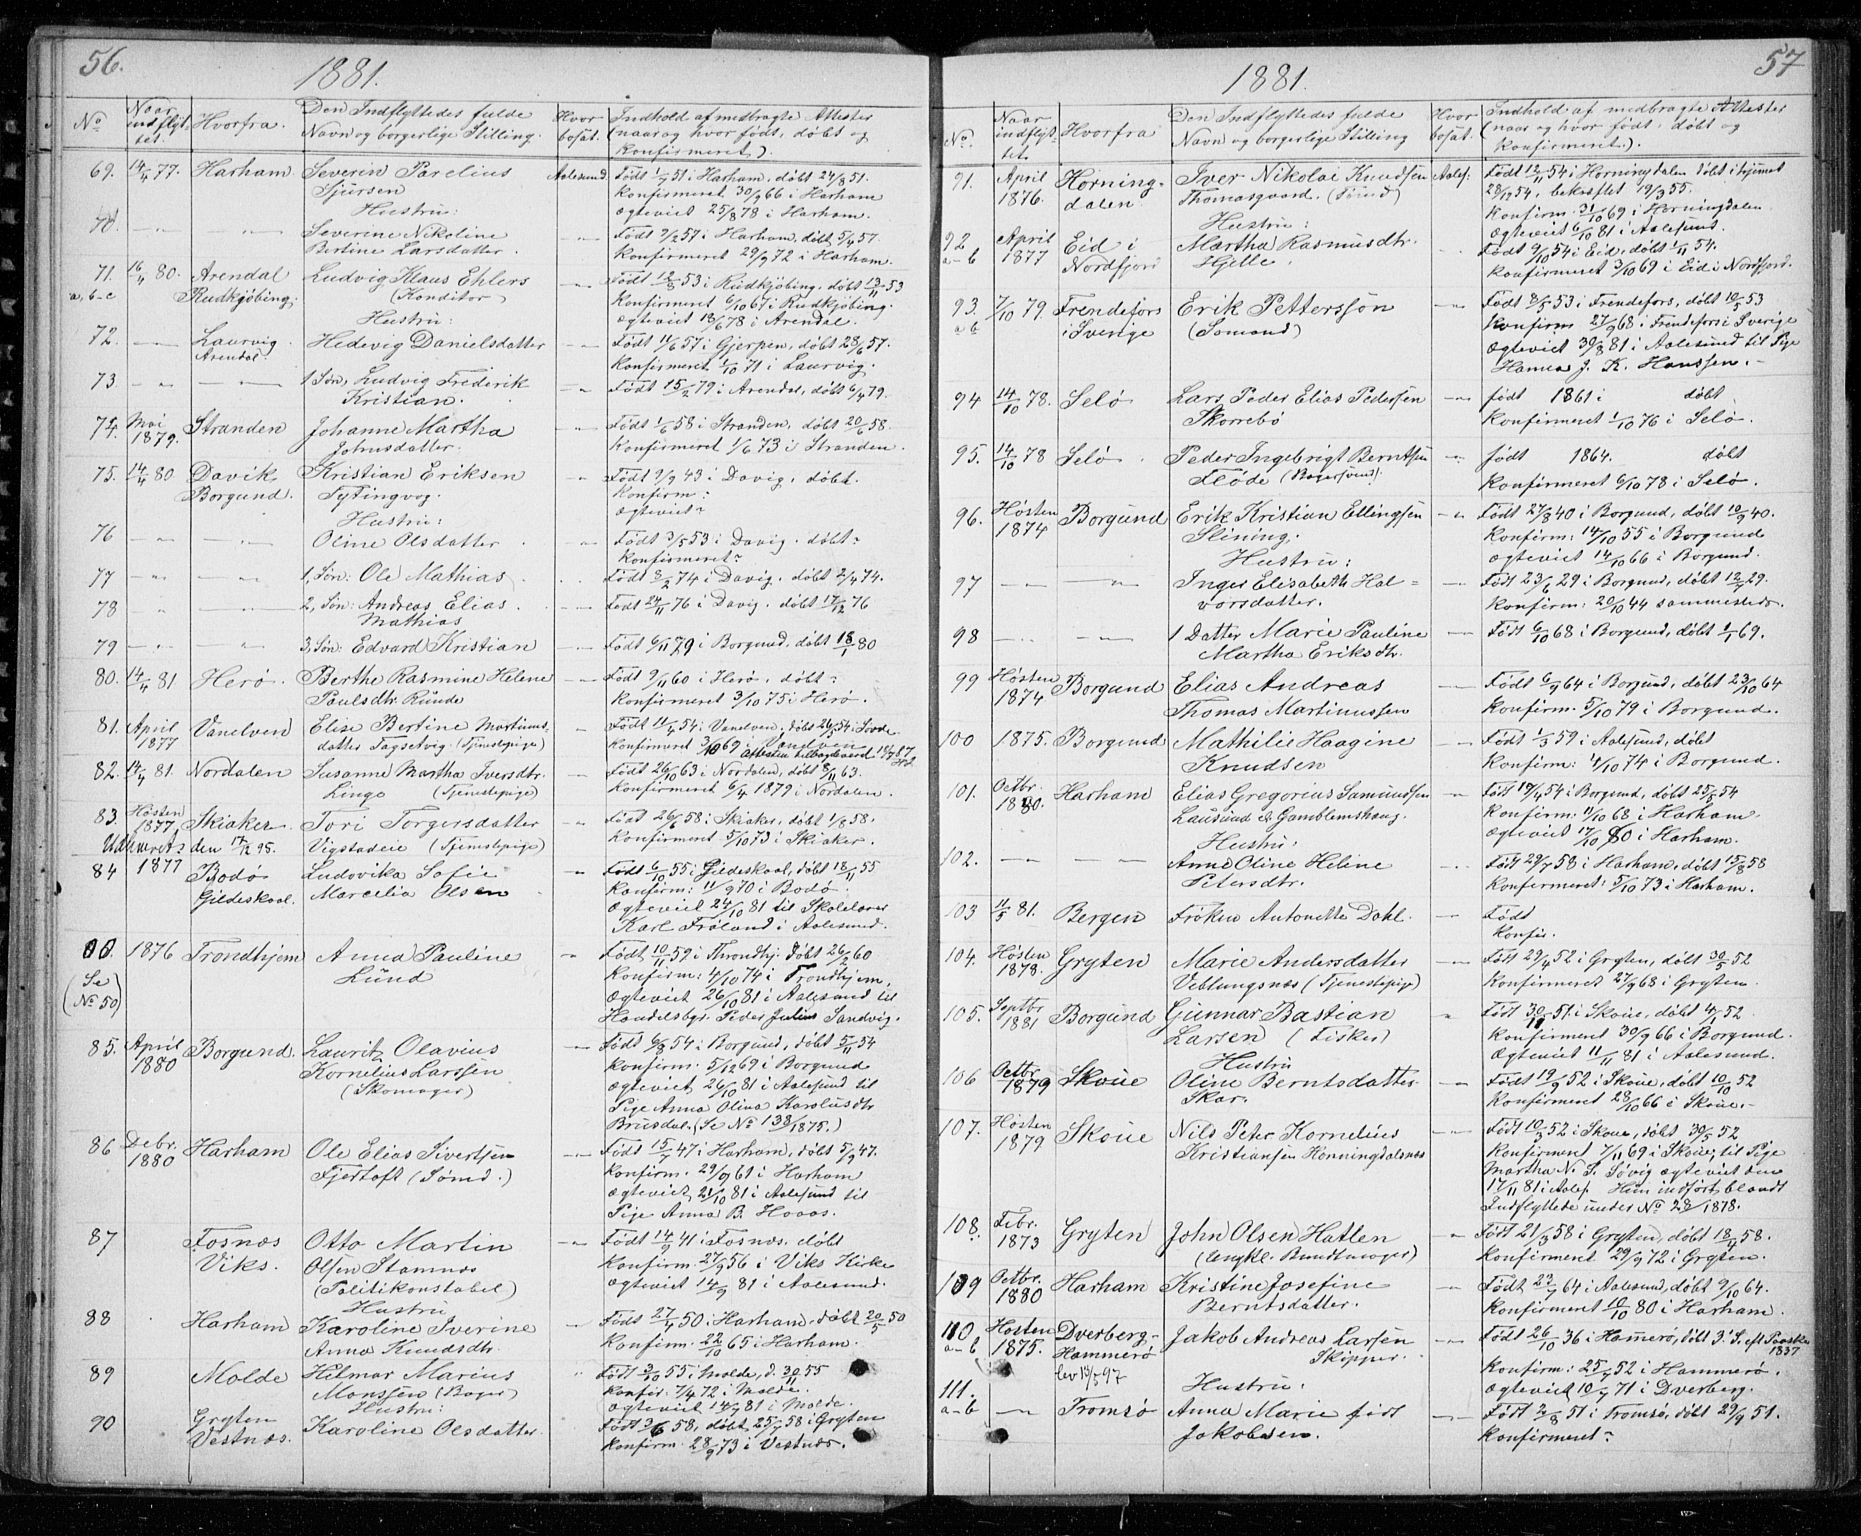 56.
1881.
No
Naar indflyttet.
Hvorfra.
Den Indflyttedes fulde Navn og borgerlige Stilling.
Hvor bosat.
Indhold af medbragte Attester (naar og hvor født, døbt og konfirmeret).
69. 14/4 77. Harham Severin Parelius Aalesund Født 1/7 51 i Harham, døbt 24/8 51.
Sjursen konfirmeret 30/9 66 i Harham
Hustru: ægteviet 25/8 78 i Harham.
70. — — Severine Nikoline — Født 9/2 57 i Harham, døbt 5/4 57.
Bertine Larsdatter konfirmeret 29/9 72 i Harham.
71. 16/4 80. Arendal Ludvig Klaus Ehlers — Født 12/8 53 i Rudkjøbing, døbt 13/11 53
a, b-c Rudkjöbing. (Konditor) konfirmeret 6/10 67 i Rudkjøbing.
Hustru: ægteviet 18/6 78 i Arendal.
72. — Laurvig Hedevig Danielsdatter — Født 11/6 57 i Gjerpen, døbt 28/6 57.
Arendal konfirmeret 1/10 71 i Laurvig.
73 — — 1 Søn, Ludvig Frederik — Født 15/2 79 i Arendal, døbt 6/4 79.
Kristian.
74. Mai 1879. Stranden Johanne Martha — Født 1/6 58 i Stranden, døbt 20/6 58.
Johnsdatter. konfirmeret 1/6 73 i Stranden.
75. 14/4 80 Davik Kristian Eriksen — Født 9/9 43 i Davig, døbt.
Borgund. Tytingvog. konfirm:
Hustru: ægteviet
76 — — Oline Olsdatter — Født 3/5 53 i Davig, døbt
konfirmeret
77 — — 1, Søn: Ole Mathias — Født 8/2 74 i Davig, døbt 2/4 74.
78 — — 2, Søn: Andreas Elias — Født 24/11 76 i Davig, døbt 17/12 76
Mathias
79 — — 3, Søn: Edvard Kristian — Født 6/11 79 i Borgund, døbt 18/1 80
80. 14/4 81 Herö. Berthe Rasmine Helene — Født 9/4 60 i Herö, døbt
Paulsdtr. Runde konfirmeret 3/10 75 i Herö.
81. April 1877 Vanelven Elise Bertine Martinus- — Født 11/4 54 i Vanelven, døbt 26/5 54 i
datter Sagselvig (Tjenestepige) konfirmeret 3/10 69 i Vanelven
82. 14/4 81. Nordalen Susanne Martha Iversdtr. — Født 26/10 63 i Nordalen, døbt 8/11 63.
Linge (Tjenestepige) konfirmeret 6/4 1879 i Nordalen.
83. Høsten 1877, Skiaker Tori Torgersdatter — Født 26/6 58 i Skiaker, døbt 1/8 58.
den 17/12 95. Vigstadeie (Tjenestepige) konfirmeret 5/10 73 i Skiaker.
84 1877 Bodö Ludovika Sofie — Født 6/10 55 i Gildeskaal, døbt 18/11 55
Gildeskaal. Marcelia Olsen konfirm: 11/9 70 i Bodö.
ægteviet 24/10 81 til Skolelærer
Karl Fröland i Aalesund.
1876 Trondhjem Anna Pauline — Født 10/11 59 i Throndhj. døbt 26/2 60
(Se No 50) Lund konfirm: 4/10 74 i Trondhjem,
ægteviet 26/10 81 i Aalesund til
Handelsbgr. Peder Julius Sandvig.
85. April 1880 Borgund. Lauritz Olavius — Født 6/8 54 i Borgund, døbt 5/11 54
Kornelius Larssen konfirm. 5/12 69 i Borgund
(Skomager) ægteviet 26/10 81 i Aalesund til
Pige Anna Olina Karolusdtr
Brusdal. (Se No 138/1875.)
86 Debr. 1880 Harham Ole Elias Sivertsen — Født 15/7 47 i Harham, døbt 5/9 47.
Fjertoft (Sömd.) konfirm. 29/9 61 i Harham
ægteviet 21/10 81 i Aalesund til
Pige Anna B. Hovos.
87 Fosnæs Otto Martin — Født 14/9 41 i Fosnæs, døbt
Viks. Olsen Stamnæs konfirm. 27/9 56 i Viks Kirke
(Politikonstabel) ægteviet 14/9 81 i Aalesund.
Hustru
88 Harham Karoline Iverine — Født 27/4 50 i Harham, døbt 20/5 50
Anna Knudsdtr. konfirm. 22/10 65 i Harham.
89 Molde Hilmar Marius Født 3/10 55 i Molde, d. 30/11 55
Monssen (Bager) konfir: 7/4 72 i Molde.
Hustru: ægteviet 14/7 81 i Molde.
90 Gryten Karoline Olsdatter Født 3/6 58, døbt 25/7 58 i Gryten
Vestnæs. konfirm. 28/9 73 i Vestnæs.
57
1881.
No.
Naar indflyttet
Hvorfra
Den Indflyttedes fulde Navn og borgerlige Stilling
Hvor bosat.
Indhold af medbragte Attester (naar og hvor født, døbt og konfirmeret).
91. April 1876. Horningdalen Iver Nikolai Knudsen Aales. Født 12/11 54 i Horningdalen døbt i hjemmet
Thomasgaard. (Sømd) 28/12 54, bekræftet 19/3 55.
Hustru: konfirm. 31/10 69 i Horningdalen
ægteviet 6/10 81 i Aalesund.
92 a-b April 1877 Eid i Nordfjord Martha Rasmusdtr. Født 9/10 54 i Eid, døbt 1/11 54.
Hjelle. konfirmeret 3/10 69 i Eid i Nordfjord.
93. a b 7/10 79 Frendefors i Sverige Erik Pettersson — Født 8/5 53 i Frendefors, døbt 10/5 53
(Sømand) konfirm 27/9 68 i Frendefors i Sverige
ægteviet 30/8 81 i Aalesund til Pige
Hanna J. K. Hanssen.
94 14/10 78. Selö Lars Peder Elias Pedersen — født 1861 i døbt
Skorrebö konfirmeret 1/10 76 i Selö.
95. 14/10 78 Selö Peder Ingebrigt Berntsen — født 1864. døbt
Flöde (Bagersvend) konfirmeret 6/10 78 i Selö.
96. Høsten 1874 Borgund Erik Kristian Ellingsen — Født 27/8 40 i Borgund, døbt 10/9 40.
Slining. konfirm: 14/10 55 i Borgund
Hustru: ægteviet 14/10 66 i Borgund.
97 — — Inger Elisabeth Hal- — Født 23/6 29 i Borgund, døbt 12/7 29.
vorsdatter. konfirm: 20/10 44 sammesteds.
98 — — 1 Datter Marie Pauline — Født 6/10 68 i Borgund, døbt 1/1 69.
Martha Eriksdtr.
99 Høsten 1874 Borgund Elias Andreas — Født 6/9 64 i Borgund, døbt 23/10 64
Thomas Martinussen konfirm. 5/10 79 i Borgund.
100 1875. Borgund Mathilde Haagine — Født 1/3 59 i Aalesund, døbt
Knudsen konfirm: 4/10 74 i Borgund.
101. Octbr. 1880. Harham Elias Gregorius Samundsen — Født 17/4 54 i Borgund, døbt 25/5 54
Lausund & Gamblemshaug. konfirm: 11/10 68 i Harham
Hustru: ægteviet 17/10 80 i Harham.
102. — — Anne Oline Helene — Født 29/7 58 i Harham, døbt 15/8 58
Petersdtr. konfirmeret: 5/10 73 i Harham.
103 11/5 81. Bergen Frøken Antonette Dahl. — Født
konfir.
104. Høsten 1878. Gryten Marie Andersdatter — Født 29/4 52 i Gryten, døbt 30/5 52
Veblungsnæs (Tjenestepige) konfirmeret 27/9 68 i Gryten.
105. Septbr 1881 Borgund Gunnar Bastian — Født 30/11 51 i Skoue, døbt 4/1 52.
Larsen (Fisker) konfirmeret 30/9 66 i Borgund.
Hustru ægteviet 11/11 81 i Aalesund.
106 Octbr. 1879 Skoue Oline Berntsdatter — Født 19/9 52 i Skoue, døbt 10/10 52
Skar. konfirmeret 28/10 66 i Skoue.
107. Høsten 1879 Skoue Nils Peter Kornelius — Født 10/3 52 i Skoue, døbt 30/5 52
Kristiansen Honningdalsnæs konfirmeret 7/11 69 i Skoue, til Pige
Martha N. S. Søvig ægteviet den
17/11 81 i Aales. Hun indført blandt
Indflyttede under No 28/1878.
108. Febr. 1873 Gryten John Olsen Hatlen — Født 21/3 58 i Gryten, døbt 18/4 58.
(Bundtmager) konfirmeret 29/9 72 i Gryten.
109 Octbr. 1880 Harham Kristine Josefine — Født 23/7 64 i Aalesund, døbt 9/10 64.
Berntsdatter. konfirmeret 10/10 80 i Harham.
110 a-b Høsten 1875. Dverberg- Jakob Andreas Larsen — Født 26/10 36 i Hammerö, døbt 3. S. eft Paaske 1837
Hammerö Skipper. konfirm: 25/7 52 i Hammerö.
lev 13/5 97 Hustru: ægteviet 10/7 71 i Dverberg.
111. a-b — Tromsö Anna Marie født — Født 2/8 51 i Tromsö, døbt 29/9 51.
Jakobsen. konfirmeret